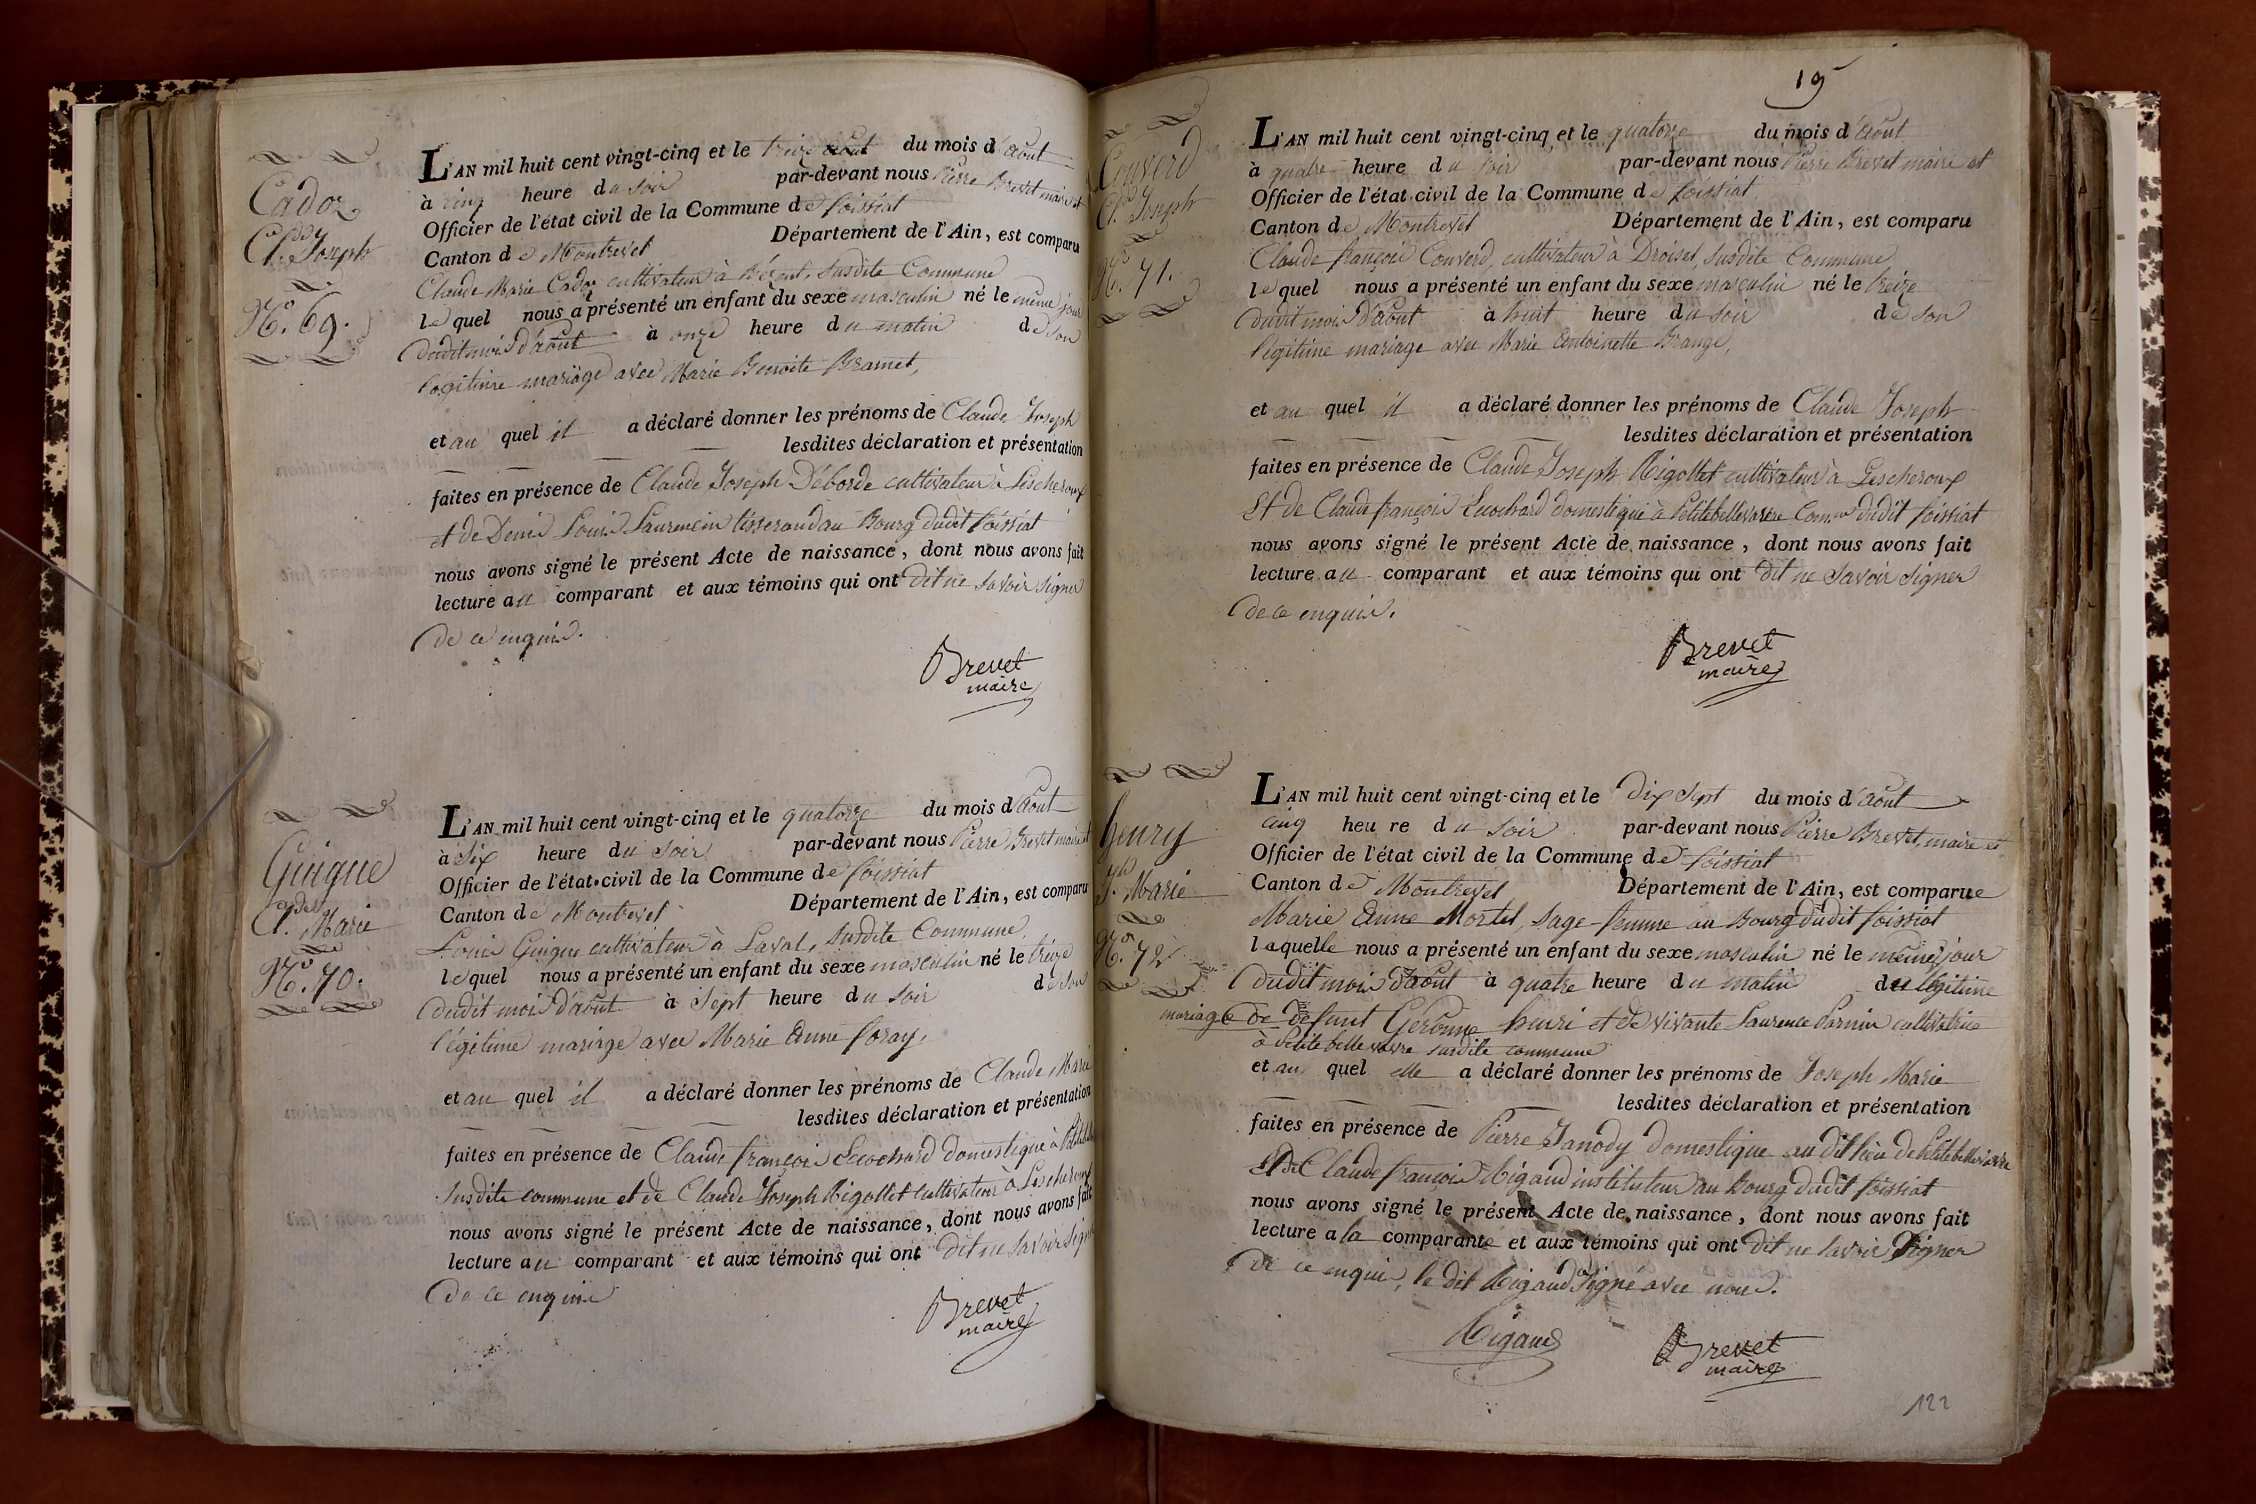 Cadoz
Cl.de Joseph
N.o 69.
L'AN mil huit cent vingt-cinq et le treize août du mois d'août
à cinq heure du soir par-devant nous Pierre Brevet maire et
Officier de l'état civil de la Commune de foissiat
Canton de Montrevel Département de l'Ain, est comparu
Claude Marie Cadoz cultivateur à susdite Commune
lequel nous a présenté un enfant du sexe masculin né le même jour
dudit mois d'août à onze heure du matin de son
légitime mariage avec Marie Benoite Bramet,
et au quel il a déclaré donner les prénoms de Claude Joseph
lesdites déclaration et présentation
faites en présence de Claude Joseph Déborde cultivateur à Lescheroux
et de Denis Louis Laurencin tisserand au Bourg dudit foissiat
nous avons signé le présent Acte de naissance, dont nous avons fait
lecture au comparant et aux témoins qui ont dit ne savoir signer
de ce enquis.
Brevet
maire
Guigue
Cl.de Marie
N.o 70.
L'AN mil huit cent vingt-cinq et le quatorze du mois d'août
à six heure du soir par-devant nous Pierre Brevet maire et
Officier de l'état civil de la Commune de foissiat
Canton de Montrevel Département de l'Ain, est comparu
Louis Guigue cultivateur à Laval, susdite Commune,
lequel nous a présenté un enfant du sexe masculin né le treize
dudit mois d'août à sept heure du soir de son
légitime mariage avec Marie Anne foray,
et au quel il a déclaré donner les prénoms de Claude Marie
lesdites déclaration et présentation
faites en présence de Claude françois Lecochard domestique à
susdite commune et de Claude Joseph Rigollet cultivateur à Lescheroux
nous avons signé le présent Acte de naissance, dont nous avons fait
lecture au comparant et aux témoins qui ont dit ne savoir signer
de ce enquis
Brevet
maire
19
Couverd
Cl. Joseph
N.o 71.
L'AN mil huit cent vingt-cinq et le quatorze du mois d'août
à quatre heure du soir par-devant nous Pierre Brevet maire et
Officier de l'état civil de la Commune de foissiat
Canton de Montrevel Département de l'Ain, est comparu
Claude françois Couverd, cultivateur à Droiset, susdite Commune
lequel nous a présenté un enfant du sexe masculin né le treize
dudit mois d'août à huit heure du soir de son
légitime mariage avec Marie Antoinette Brange,
et au quel il a déclaré donner les prénoms de Claude Joseph
lesdites déclaration et présentation
faites en présence de Claude Joseph Rigollet cultivateur à Lescheroux
Et de Claude françois Lecochard domestique à Petitebellevavre Com.ne dudit foissiat
nous avons signé le présent Acte de naissance, dont nous avons fait
lecture au comparant et aux témoins qui ont dit ne savoir signer
de ce enquis.
Brevet
maire
henry
J.ph Marie
N.o 72
L'AN mil huit cent vingt-cinq et le dix sept du mois d'août
cinq heure du soir par-devant nous Pierre Brevet, maire et
Officier de l'état civil de la Commune de foissiat
Canton de Montrevel Département de l'Ain, est comparue
Marie Anne Mortel, sage-femme au Bourg dudit foissiat
laquelle nous a présenté un enfant du sexe masculin né le même jour
dudit mois d'août à quatre heure du matin du légitime
mariage de défunt henri et de vivante Laurence cultivatrice
à Petitebellevavre susdite commune
et au quel elle a déclaré donner les prénoms de Joseph Marie
lesdites déclaration et présentation
faites en présence de Pierre Janody domestique au dit lieu de Petitebellevavre
Et de Claude françois Rigaud instituteur au Bourg dudit foissiat
nous avons signé le présent Acte de naissance, dont nous avons fait
lecture a la comparante et aux témoins qui ont dit ne savoir signer
de ce enquis, le dit Rigaud a signé avec nous.
Rigaud
Brevet
maire
122